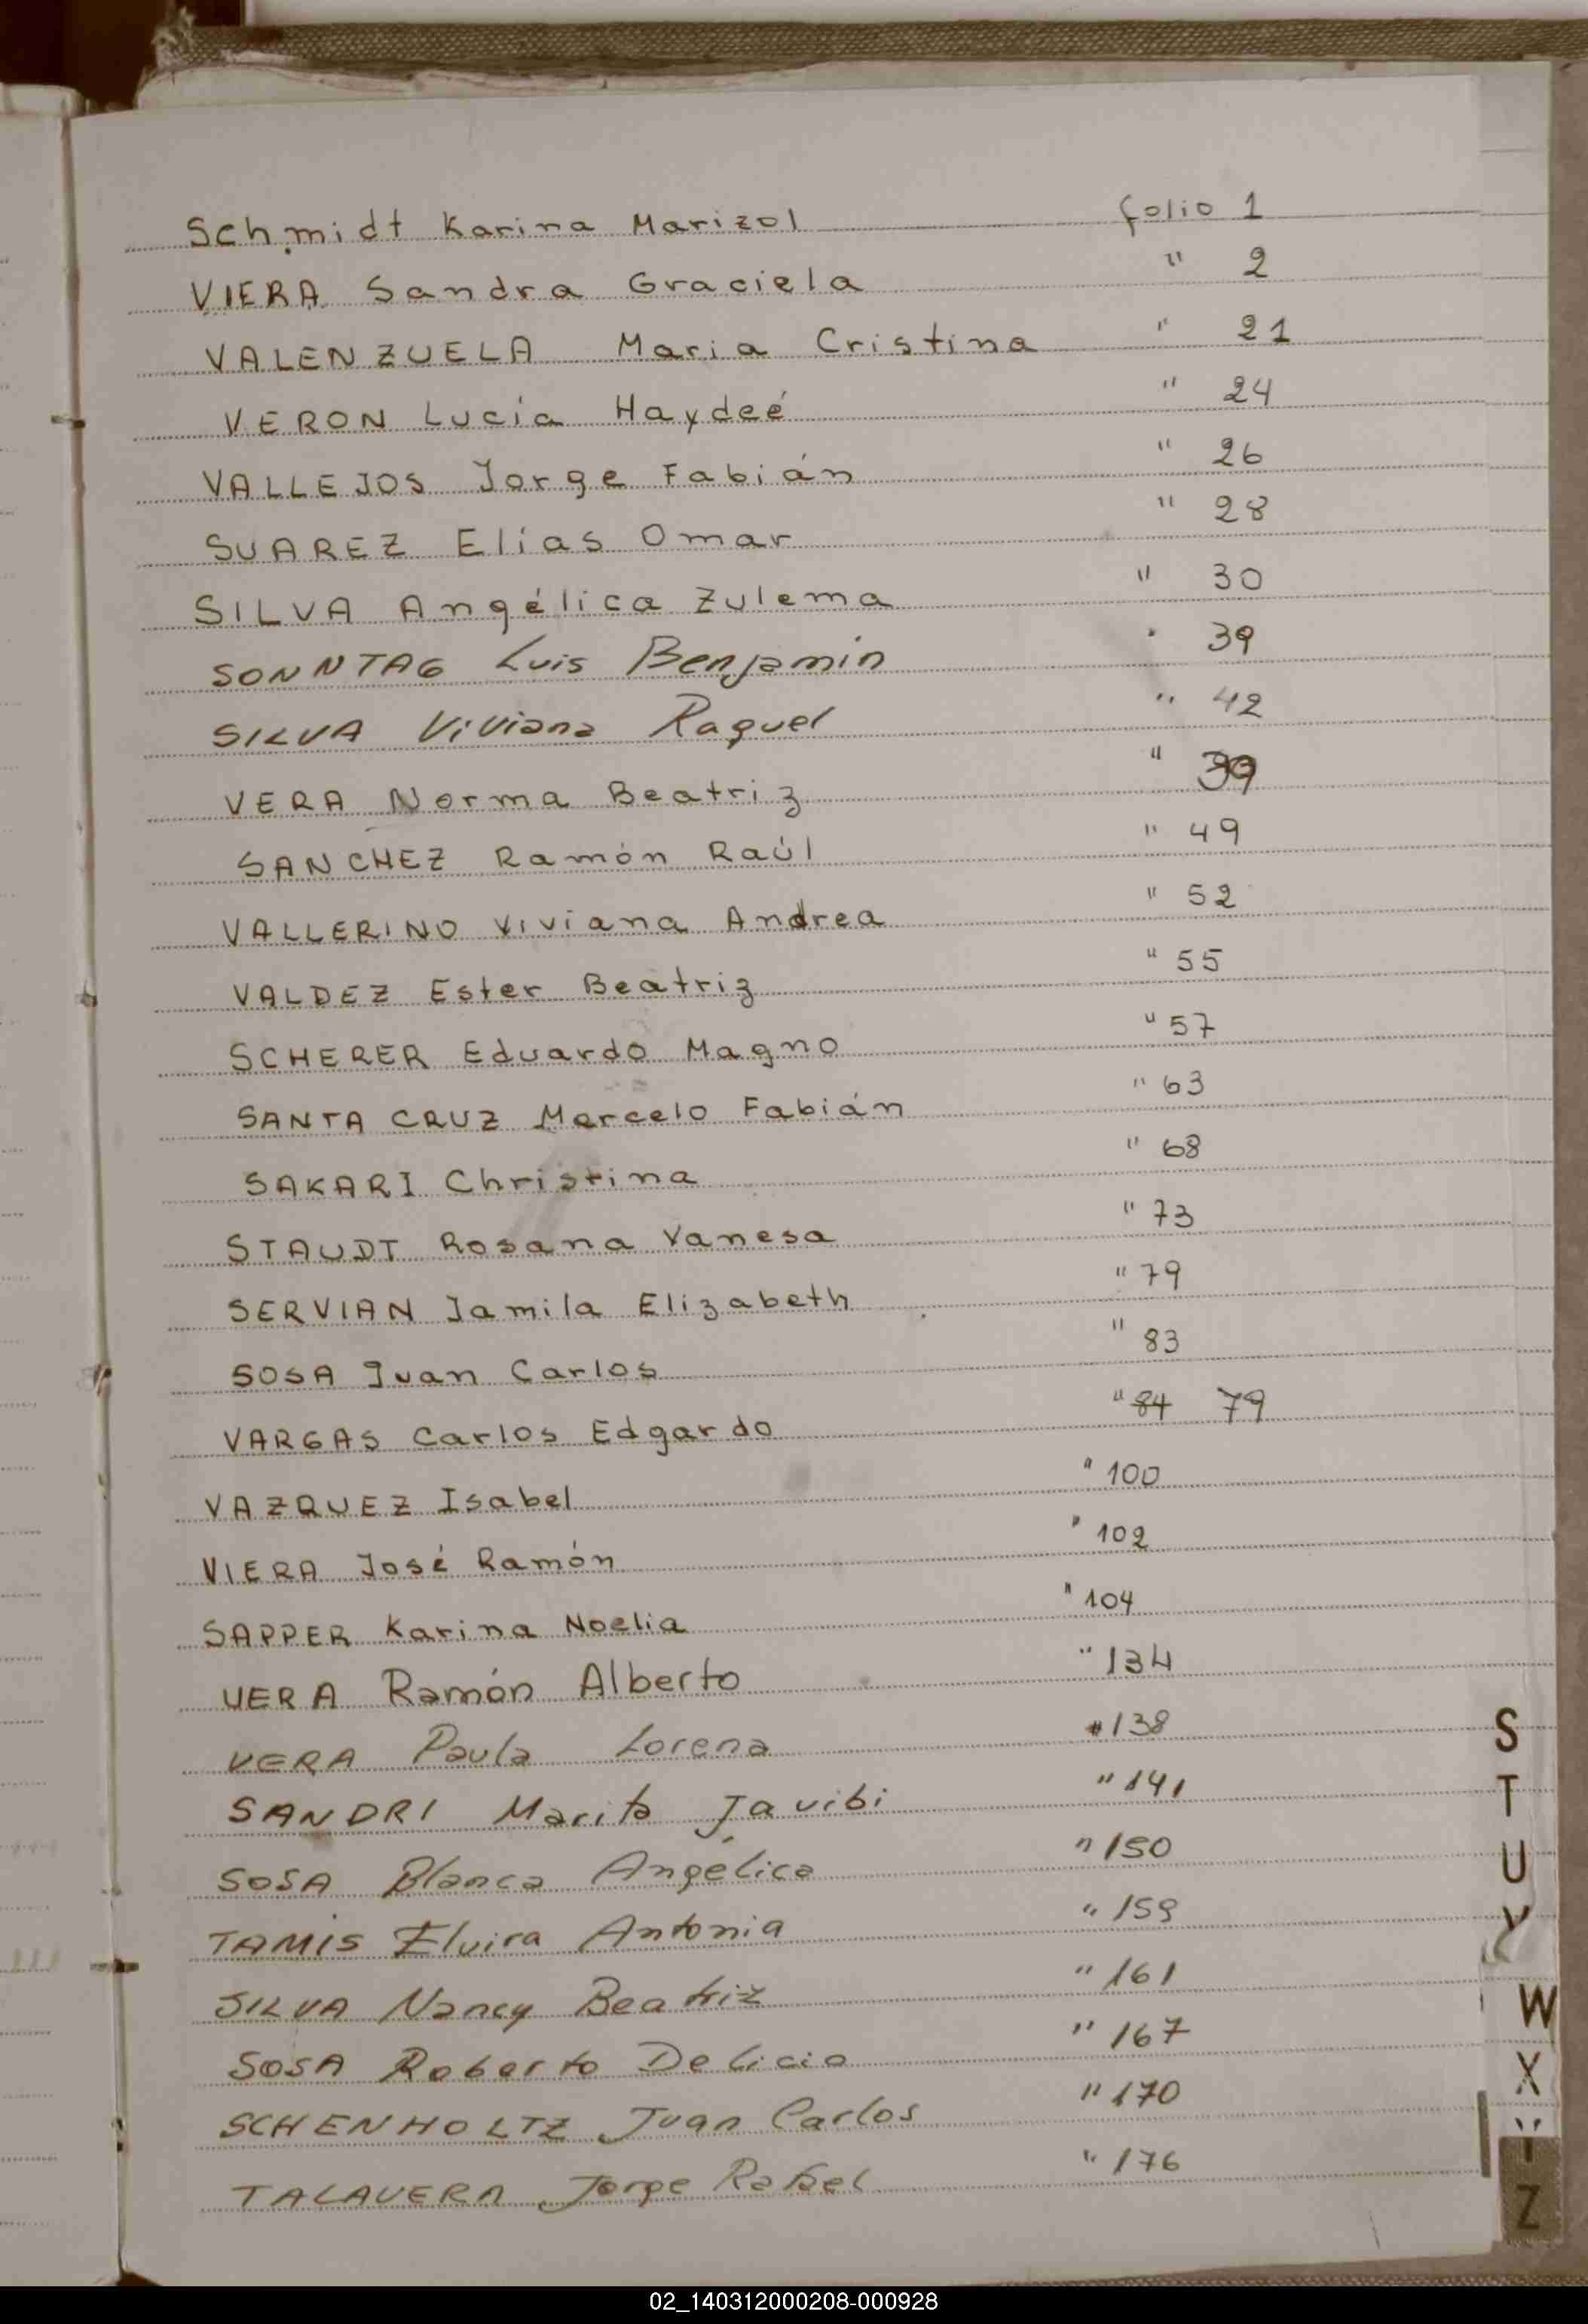 Schmidt Karina Marizol folio 1
VIERA Sandra Graciela " 2
VALENZUELA Maria Cristina " 21
VERON Lucía Haydeé " 24
VALLEJOS Jorge Fabián " 26
SUAREZ Elías Omar " 28
SILVA Angélica Zulema " 30
SONNTAG Luis Benjamin " 39
SILVA Viviana Raquel " 42
VERA Norma Beatriz " 39
SANCHEZ Ramón Raúl " 49
VALLERINO Viviana Andrea " 52
VALDEZ Ester Beatriz " 55
SCHERER Eduardo Magno " 57
SANTA CRUZ Marcelo Fabián " 63
SAKARI Christina " 68
STAUDT Rosana Vanesa " 73
SERVIAN Jamila Elizabeth " 79
SOSA Juan Carlos " 83
VARGAS Carlos Edgardo " 84 79
VAZQUEZ Isabel " 100
VIERA José Ramón " 102
SAPPER Karina Noelia " 104
VERA Ramón Alberto " 134
VERA Paula Lorena " 138
SANDRI Marita Javibi " 141
SOSA Blanca Angélica " 150
TAMIS Elvira Antonia " 159
SILVA Nancy Beatriz " 161
SOSA Roberto Delicio " 167
SCHENHOLTZ Juan Carlos " 170
TALAVERA Jorge Rafael " 176
S
T
U
V
W
X
Y
Z
02_140312000208-000928